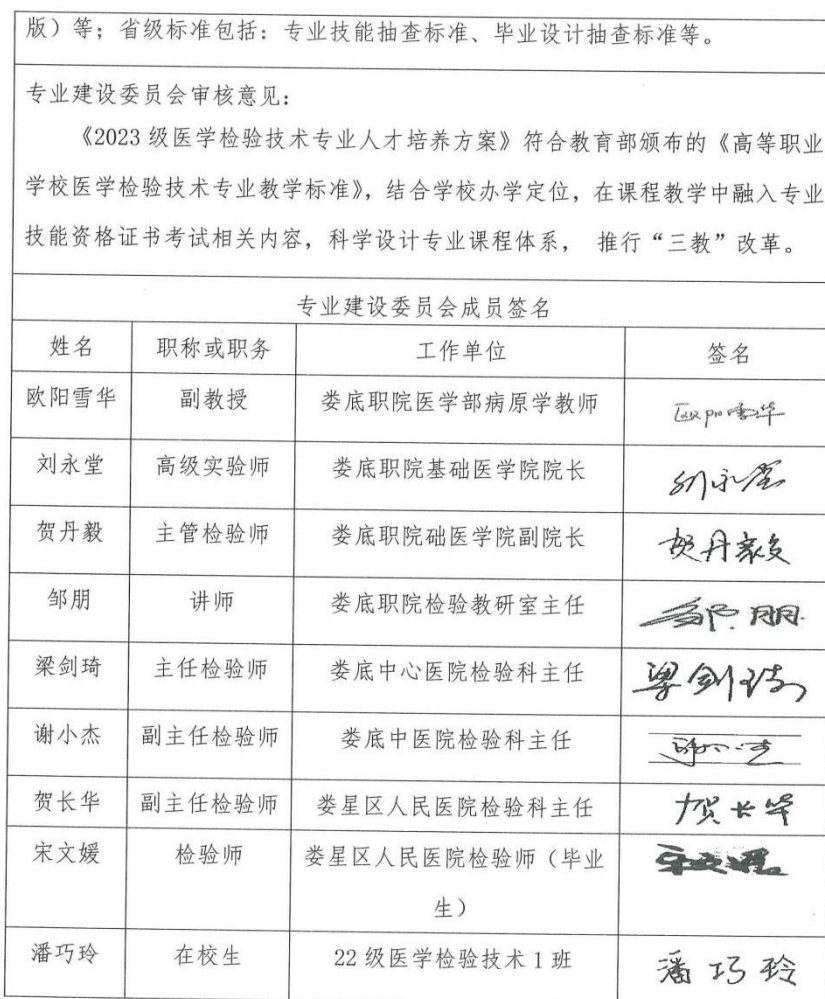 版）等；省级标准包括：专业技能抽查标准、毕业设计抽查标准等。
专业建设委员会审核意见：
《2023 级医学检验技术专业人才培养方案》符合教育部颁布的《高等职业
学校医学检验技术专业教学标准》，结合学校办学定位，在课程教学中融入专业
技能资格证书考试相关内容，科学设计专业课程体系， 推行“三教”改革。
专业建设委员会成员签名
姓名 职称或职务 工作单位 签名
欧阳雪华 副教授 娄底职院医学部病原学教师
刘永堂 高级实验师 娄底职院基础医学院院长 刘永堂
贺丹毅 主管检验师 娄底职院础医学院副院长 贺丹毅
邹朋 讲师 娄底职院检验教研室主任 邹朋
梁剑琦 主任检验师 娄底中心医院检验科主任 梁剑琦
谢小杰 副主任检验师 娄底中医院检验科主任
贺长华 副主任检验师 娄星区人民医院检验科主任 贺长华
宋文媛 检验师 娄星区人民医院检验师（毕业
生）
潘巧玲 在校生 22 级医学检验技术 1 班 潘巧玲